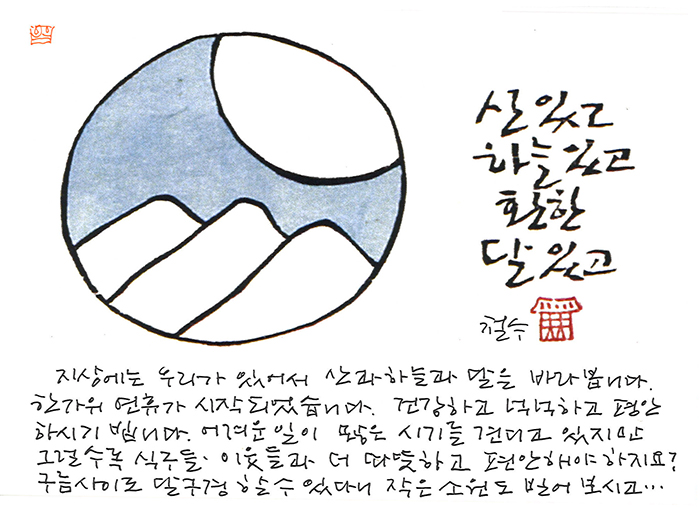 산 있고
하늘 있고
환한
달 있고
철수
지상에는 우리가 있어서 산과 하늘과 달을 바라봅니다.
한가위 연휴가 시작되었습니다. 건강하고 넉넉하고 편안
하시기 빕니다. 어려운 일이 많은 시기를 견디고 있지만
그럴수록 식구들·이웃들과 더 따뜻하고 편안해야 하지요?
구름사이로 달구경 할 수 있다니 작은 소원도 빌어 보시고...